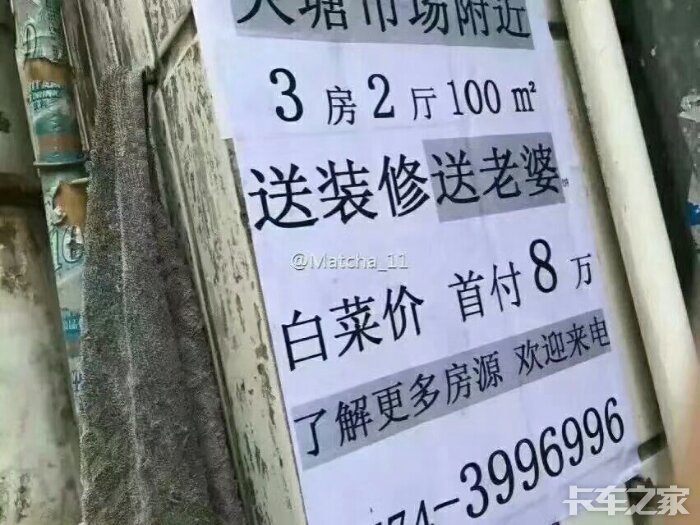 大塘市场附近
3房2厅100㎡
送装修送老婆
@Matcha_11
白菜价 首付8万
了解更多房源 欢迎来电
74-3996996
卡车之家